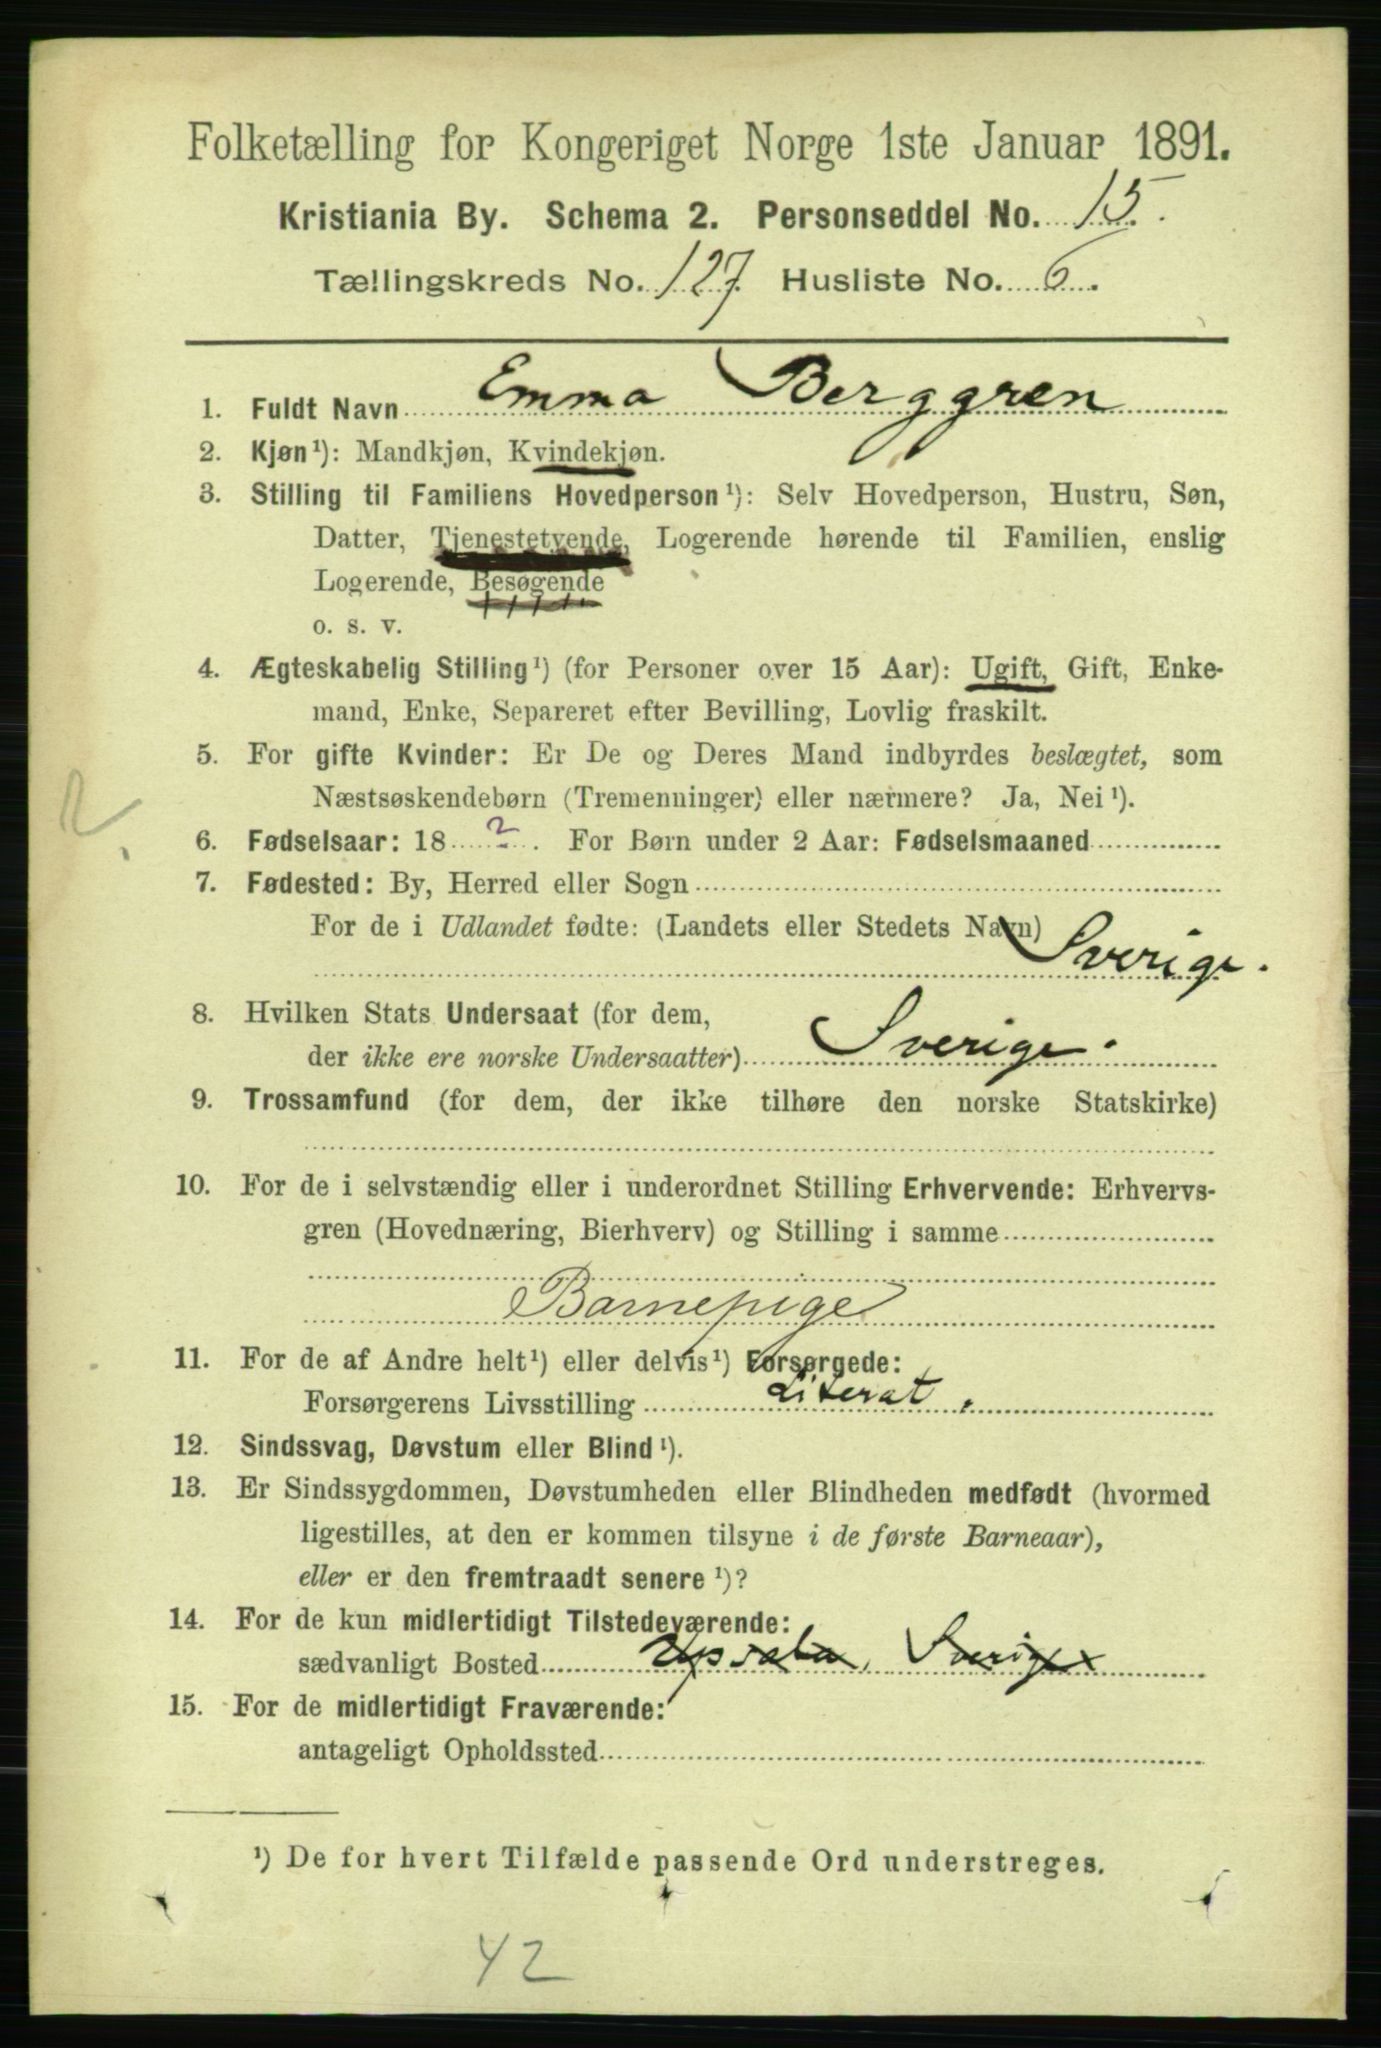 Folketælling for Kongeriget Norge 1ste Januar 1891.
Kristiania By. Schema 2. Personseddel No. 15.
Tællingskreds No. 127. Husliste No. 6.
1. Fuldt Navn Emma Berggren
2. Kjøn¹): Mandkjøn, Kvindekjøn.
3. Stilling til Familiens Hovedperson¹): Selv Hovedperson, Hustru, Søn,
Datter, Tjenestetyende, Logerende hørende til Familien, enslig
Logerende, Besøgende
o. s. v.
4. Ægteskabelig Stilling¹) (for Personer over 15 Aar): Ugift, Gift, Enke-
mand, Enke, Separeret efter Bevilling, Lovlig fraskilt.
5. For gifte Kvinder: Er De og Deres Mand indbyrdes beslægtet, som
Næstsøskendebørn (Tremenninger) eller nærmere? Ja, Nei¹).
2.
6. Fødselsaar: 18 ?. For Børn under 2 Aar: Fødselsmaaned
7. Fødested: By, Herred eller Sogn
For de i Udlandet fødte: (Landets eller Stedets Navn)
Sverige.
8. Hvilken Stats Undersaat (for dem,
der ikke ere norske Undersaatter) Sverige.
9. Trossamfund (for dem, der ikke tilhøre den norske Statskirke)
10. For de i selvstændig eller i underordnet Stilling Erhvervende: Erhvervs-
gren (Hovednæring, Bierhverv) og Stilling i samme
Barnepige
11. For de af Andre helt¹) eller delvis¹) Forsørgede:
Forsørgerens Livsstilling Literat.
12. Sindssvag, Døvstum eller Blind¹).
13. Er Sindssygdommen, Døvstumheden eller Blindheden medfødt (hvormed
ligestilles, at den er kommen tilsyne i de første Barneaar),
eller er den fremtraadt senere¹)?
14. For de kun midlertidigt Tilstedeværende:
sædvanligt Bosted Upsala, Sverige
15. For de midlertidigt Fraværende:
antageligt Opholdssted
¹) De for hvert Tilfælde passende Ord understreges.
42